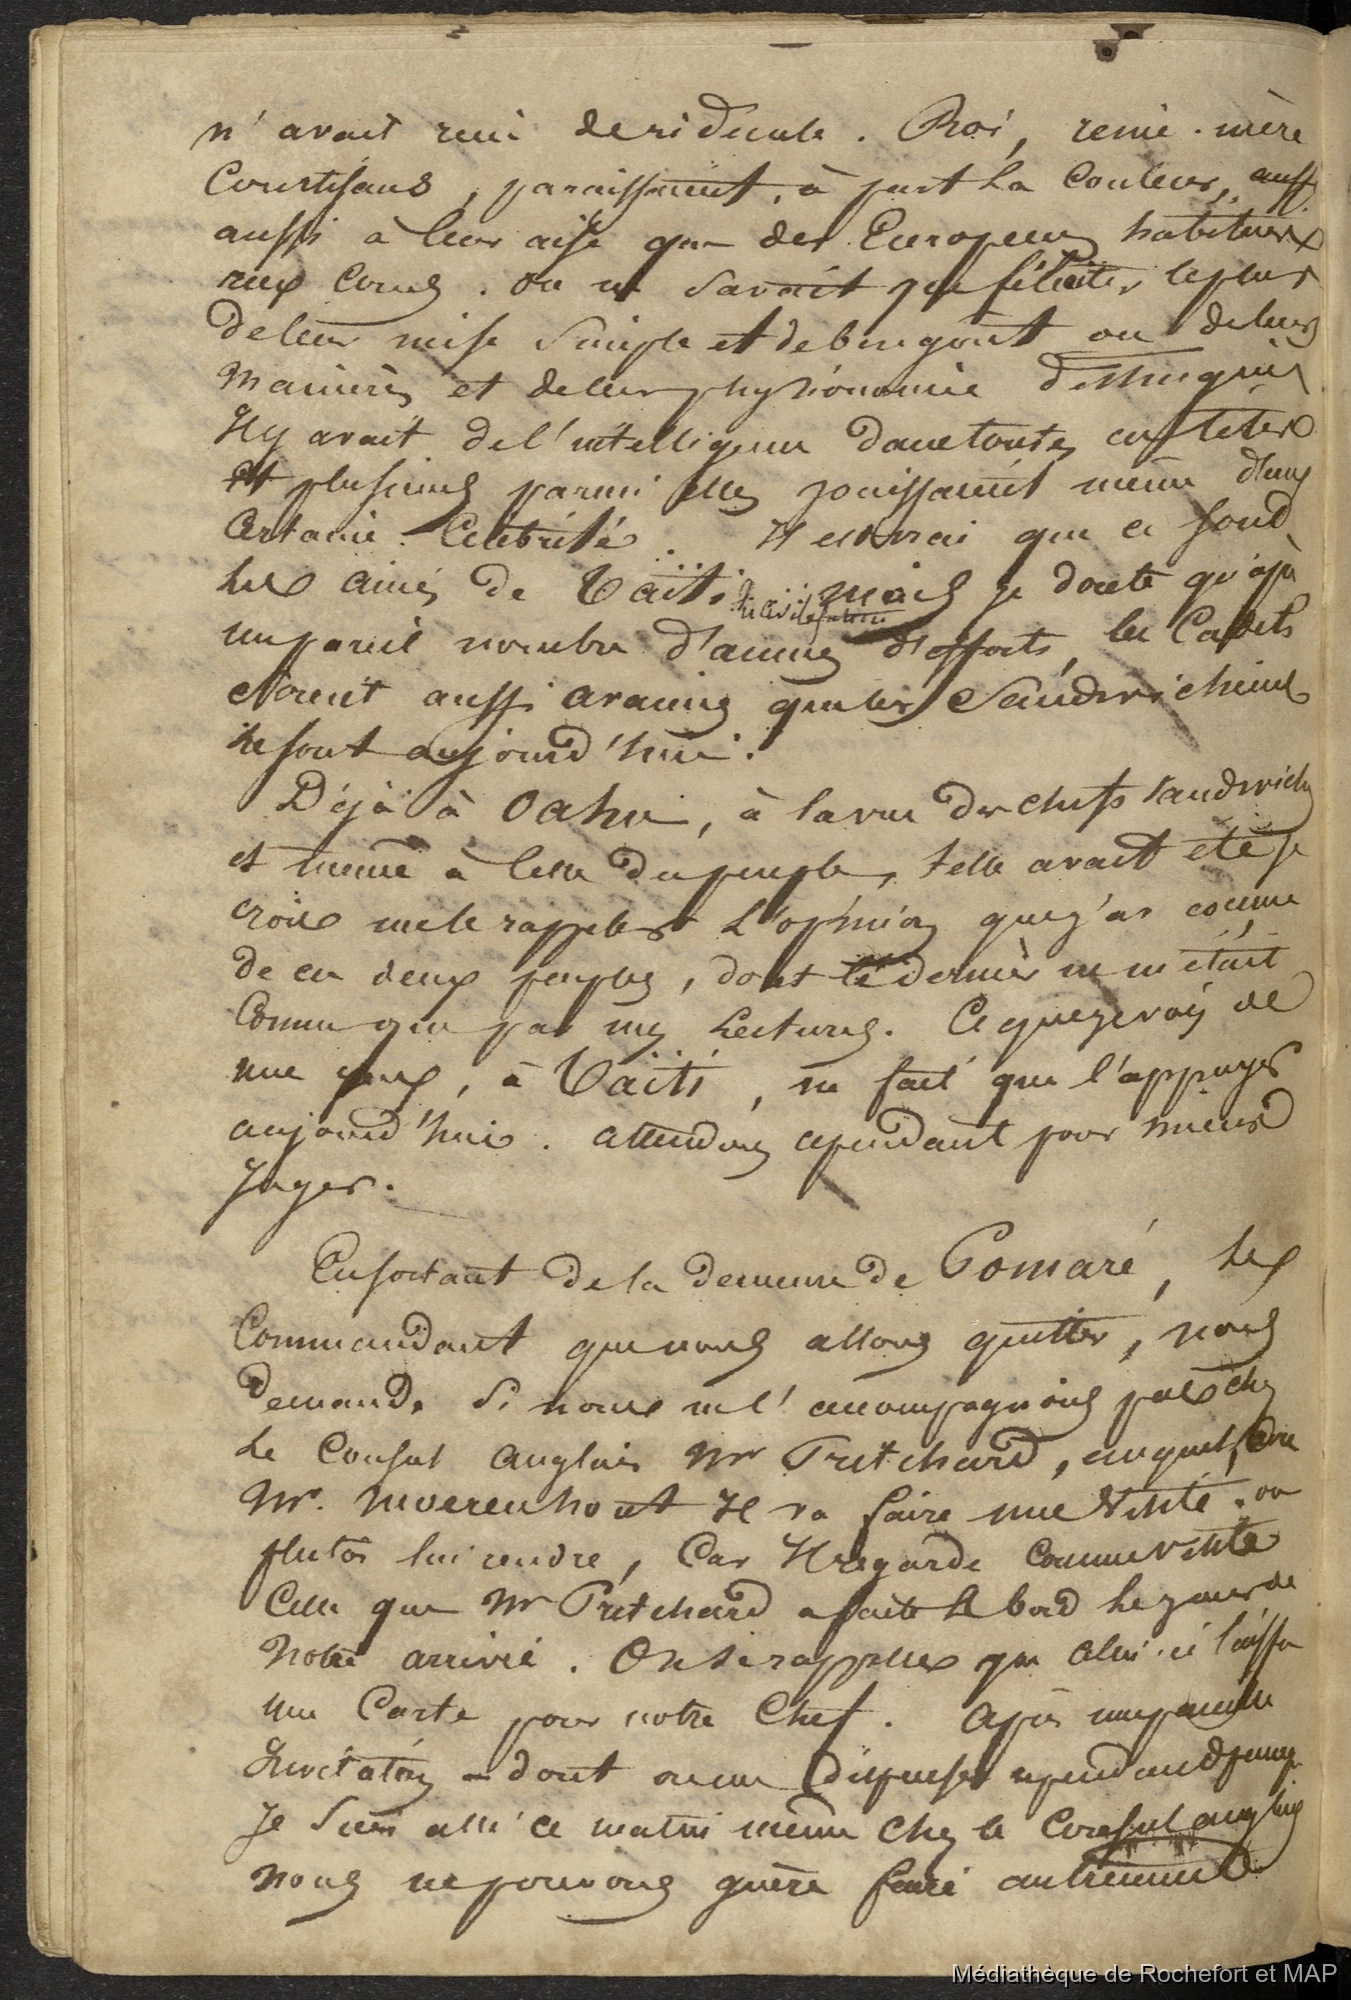 n'avait rien de ridicule. Roi, reine-mère
Courtisans, paraissaient, à part la couleur, auss
aussi à leur aise que des Européens habitués
aux Cours. On ne savait que féliciter le plus
de leur mise simple et de bon goût ou de leurs
manières et de leur physionomie distinguée
Il y avait de l'intelligence dans toutes ces têtes
et plusieurs parmi elles jouissaient même d'une
certaine célébrité. Il est vrai que ce sont
les aînés de Taïti mais je doute qu'après
un pareil nombre d'années d'efforts, les Cadets
soient aussi avancés que les Sandwichiens
le sont aujourd'hui.
Déjà à Oahu, à la vue des chefs sandwichs
et même à celle du peuple, telle avait été je
crois me le rappeler l'opinion que j'ai conçue
de ces deux peuples, dont le dernier ne m'était
connu que par mes lectures. Ce que je vois de
mes yeux, à Taïti, ne fait que l'appuyer
aujourd'hui. Attendons cependant pour mieux
juger.
En sortant de la demeure de Pomaré, le
Commandant que nous allons quitter, nous
demande si nous ne l'accompagnons pas chez
le Consul anglais Mr Pritchard, auquel,
Mr. Moerenhout Il va faire une visite. ou
plutôt lui rendre, Car Il regarde comme visite
celle que Mr Pritchard a faite à bord le jour de
notre arrivée. On se rappelle que celui-ci laissa
une Carte pour notre Chef. Après une pareille
Invitation - dont on me dispenser cependant puisque
Je suis allé ce matin même chez le Consul anglais
nous ne pouvons guère faire autrement
Médiathèque de Rochefort et MAP